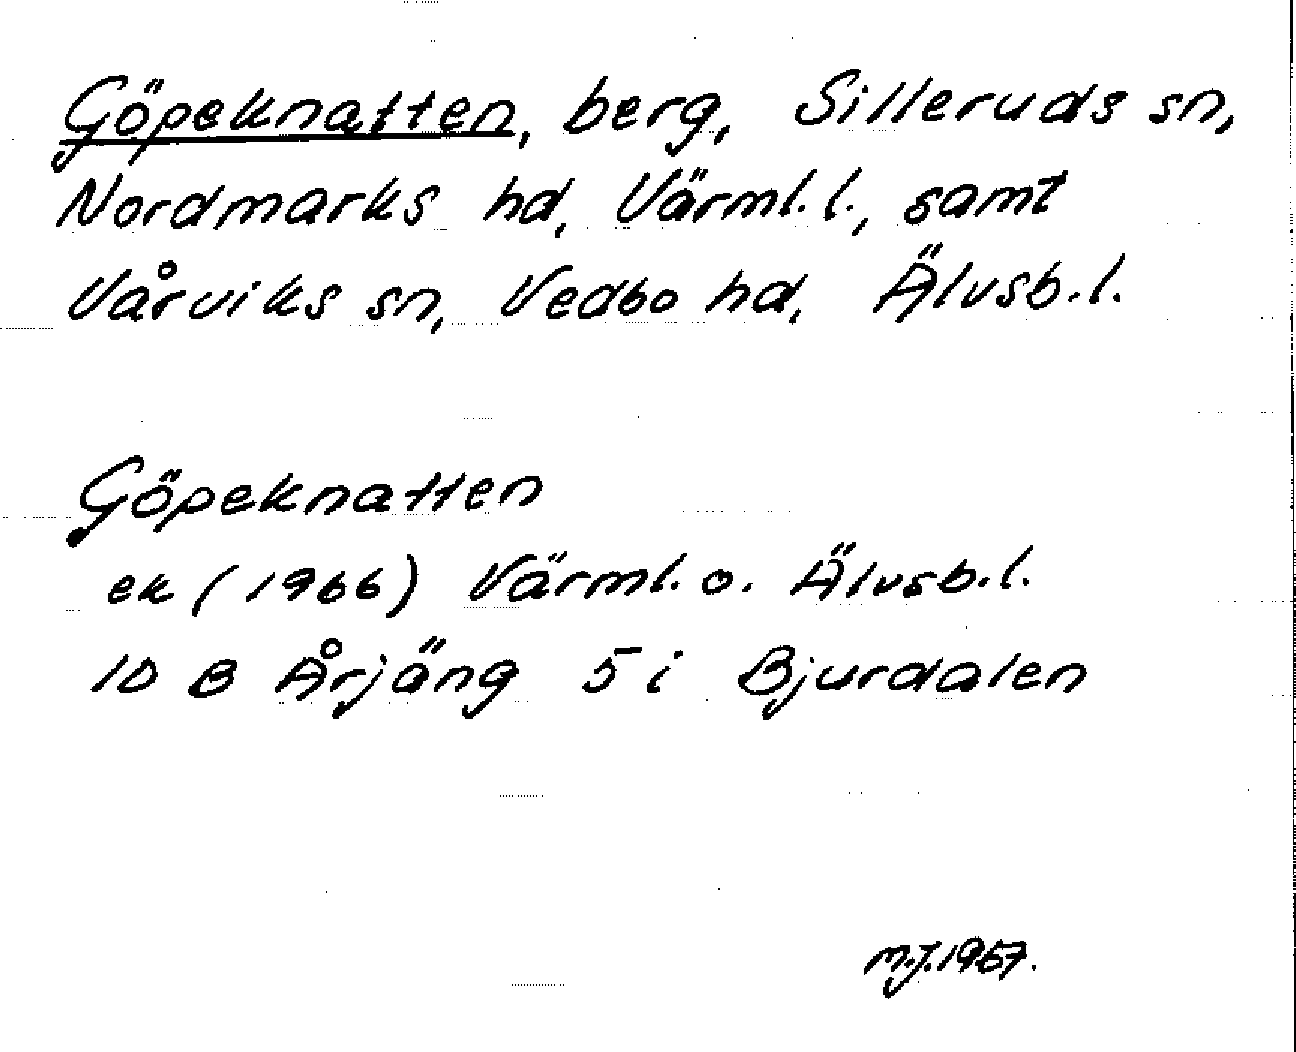 Göpeknatten, berg, Silleruds sn,
Nordmarks hd, Värml. l., samt
Vårviks sn, Vedbo hd, Älvsb. l.
Göpeknatten
ek (1966) Värml. o. Älvsb. l.
10 B Årjäng 5 i Bjurdalen
M.J. 1967.